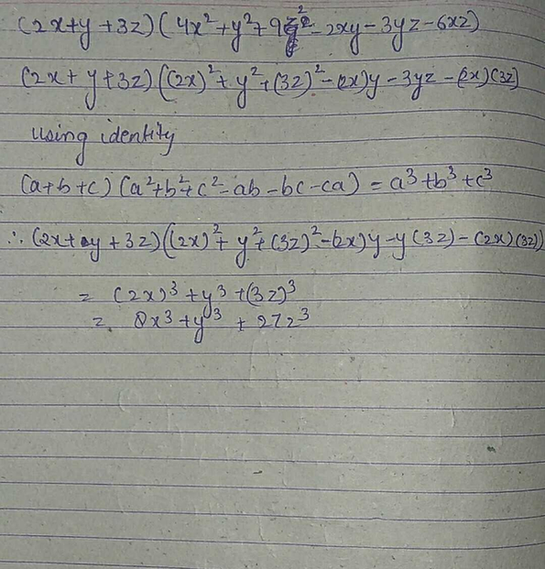 (2x+y+3z)(4x²+y²+9z²-2xy-3yz-6xz)
(2x+y+3z)((2x)²+y²+(3z)²-(2x)y-3yz-(2x)(3z)
using identity
(a+b+c)(a²+b²+c²-ab-bc-ca)=a³+b³+c³
∴(2x+y+3z)((2x)²+y²+(3z)²-(2x)y-y(3z)-(2x)(3z))
= (2x)³+y³+(3z)³
= 8x³+y³+27z³